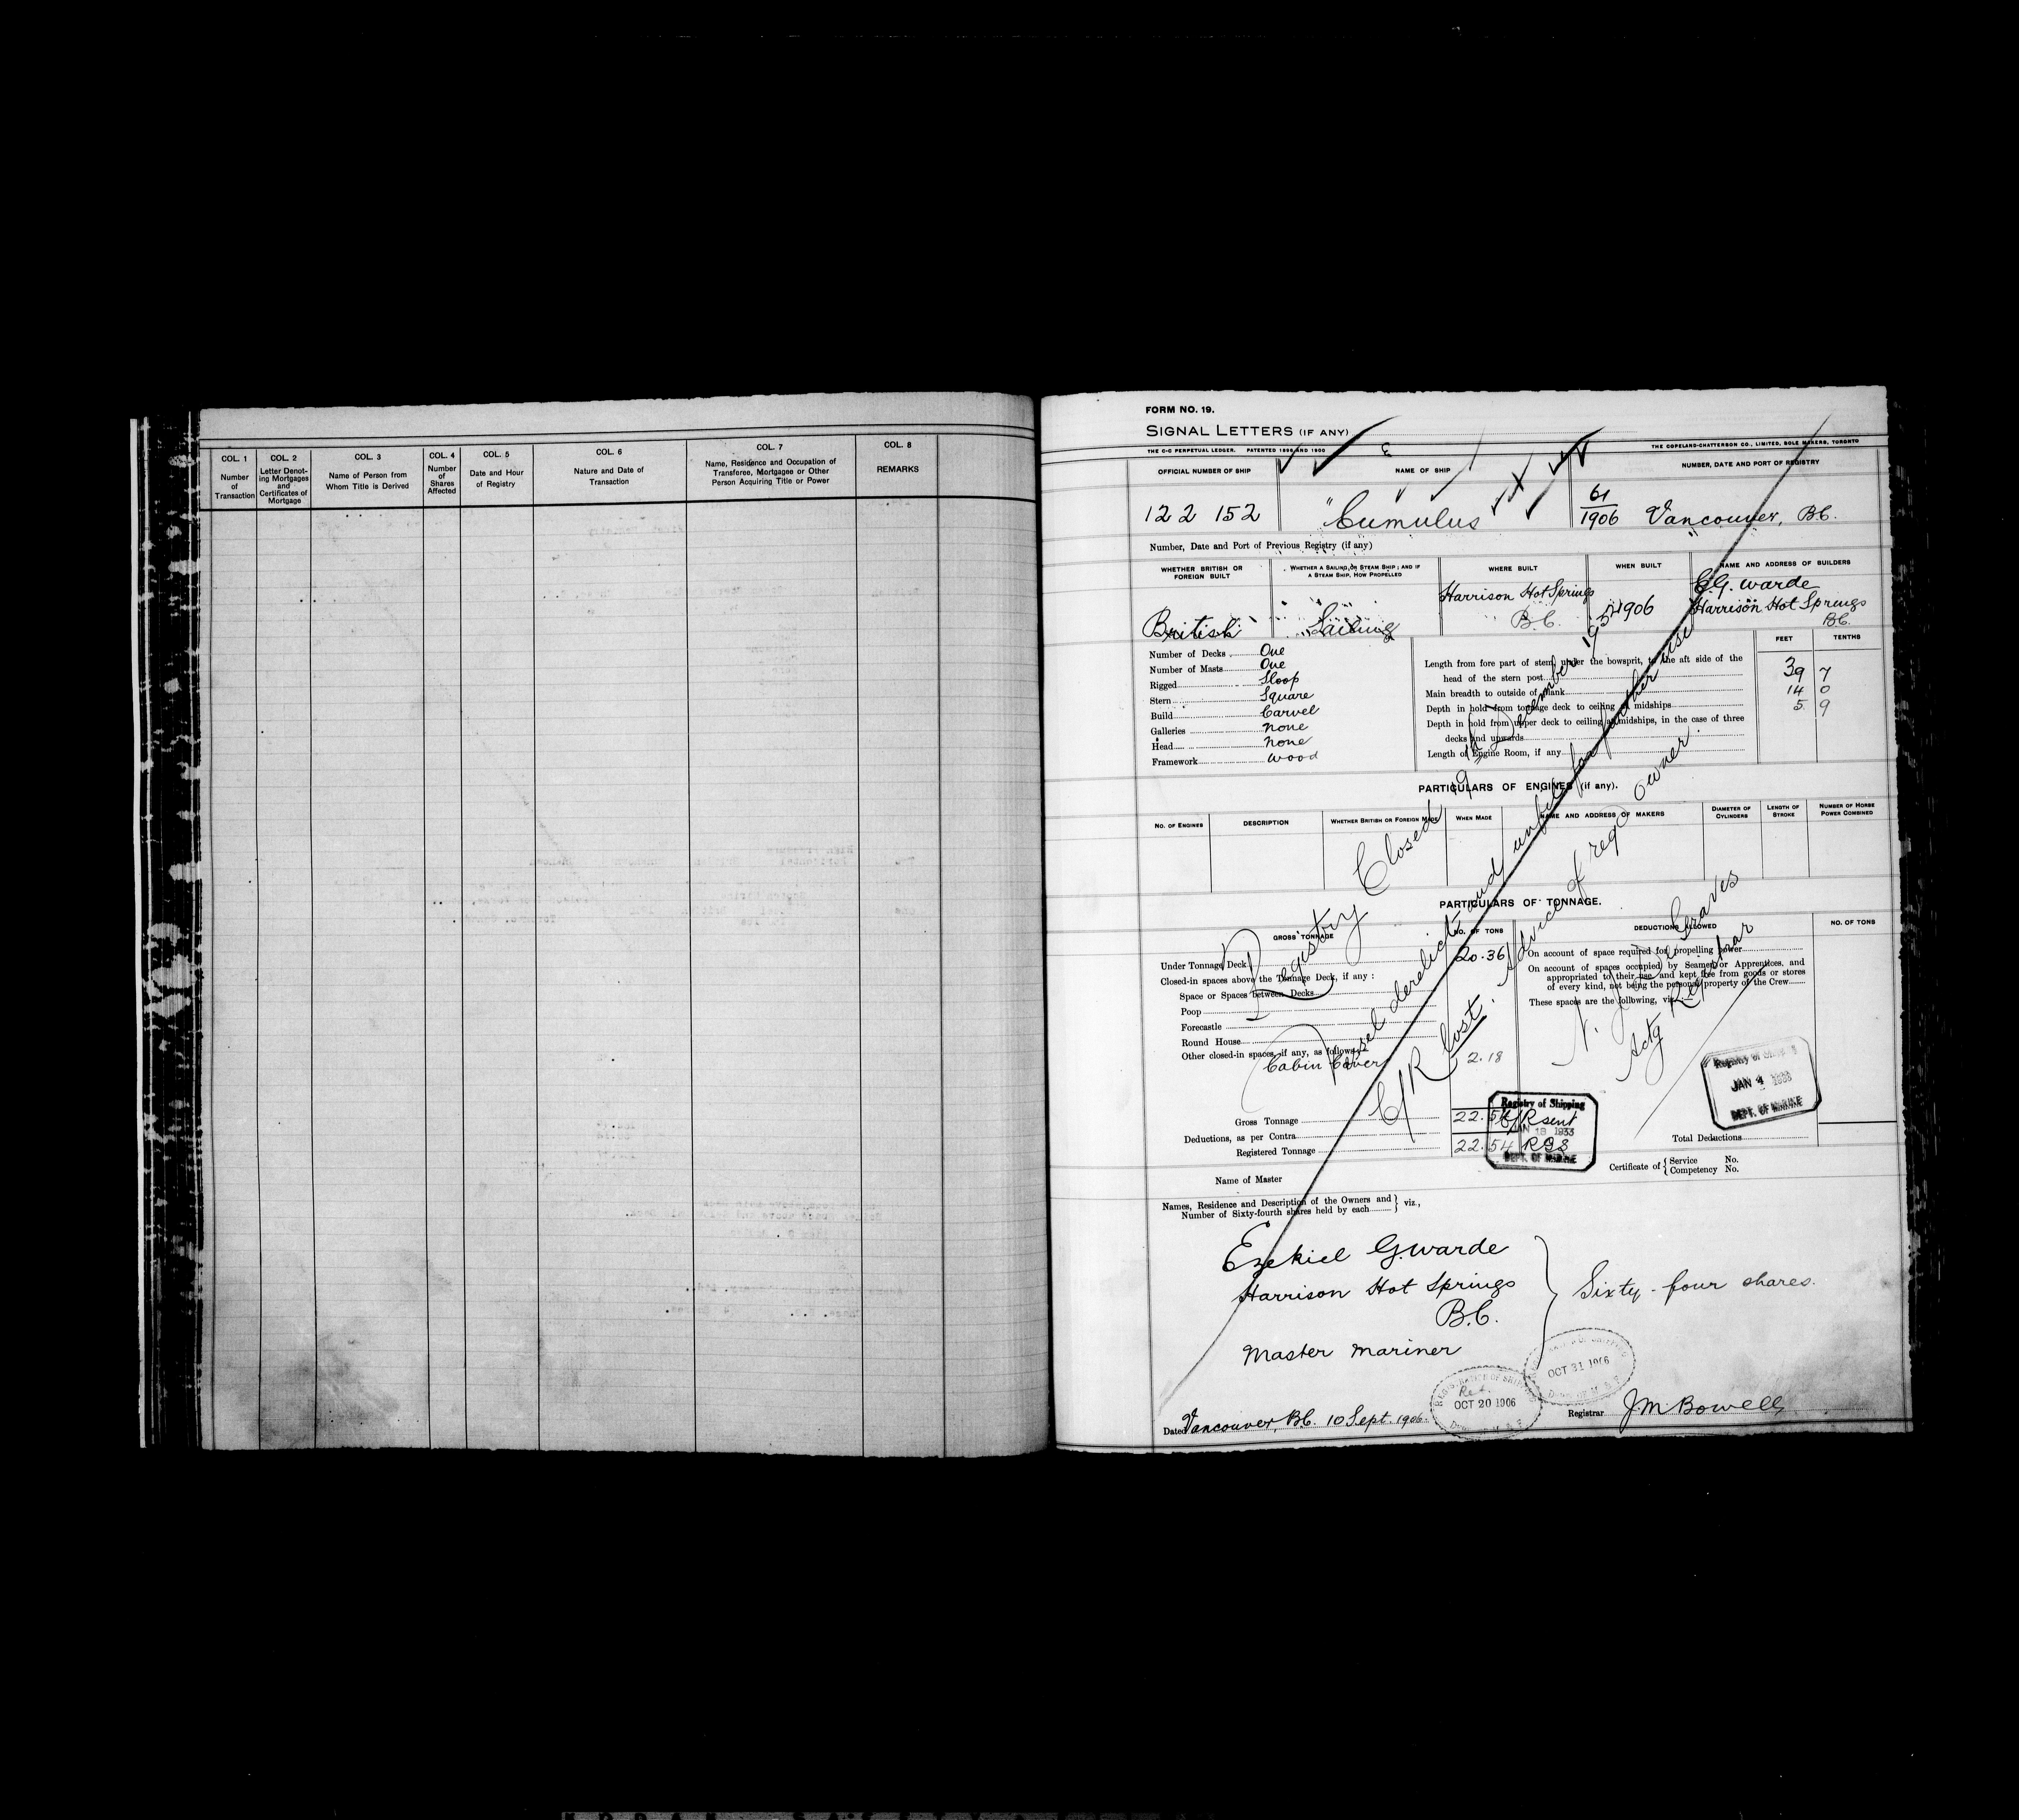 COL. 1
Number
of
Transaction
COL. 2
Letter Denot-
ing Mortgages
and
Certificates of
Mortgage
COL. 3
Name of Person from
Whom Title is Derived
COL. 4
Number
of
Shares
Affected
COL. 5
Date and Hour
of Registry
COL. 6
Nature and Date of
Transaction
COL. 7
Name, Residence and Occupation of
Transferee, Mortgagee or Other
Person Acquiring Title or Power
COL. 8
REMARKS
FORM NO. 19.
SIGNAL LETTERS (IF ANY)
THE C-C PERPETUAL LEDGER. PATENTED 1896 AND 1900
THE COPELAND-CHATTERSON CO., LIMITED, SOLE MAKERS, TORONTO
OFFICIAL NUMBER OF SHIP
NAME OF SHIP
NUMBER, DATE AND PORT OF REGISTRY
122 152
"Cumulus"
61/1906 Vancouver, B.C.
Number, Date and Port of Previous Registry (if any)
WHETHER BRITISH OR
FOREIGN BUILT
WHETHER A SAILING OR STEAM SHIP; AND IF
A STEAM SHIP, HOW PROPELLED
WHERE BUILT
WHEN BUILT
NAME AND ADDRESS OF BUILDERS
British
Sailing
Harrison Hot Springs
B.C.
1906
E.G. Warde
Harrison Hot Springs
B.C.
Number of Decks One
Number of Masts One
Rigged Sloop
Stern Square
Build Carvel
Galleries None
Head None
Framework Wood
FEET TENTHS
Length from fore part of stem, under the bowsprit, to the aft side of the
head of the stern post 39 7
Main breadth to outside of plank 14 0
Depth in hold from tonnage deck to ceiling at midships 5 9
Depth in hold from upper deck to ceiling at midships, in the case of three
decks and upwards
Length of Engine Room, if any
PARTICULARS OF ENGINES (if any).
NO. OF ENGINES
DESCRIPTION
WHETHER BRITISH OR FOREIGN MADE
WHEN MADE
NAME AND ADDRESS OF MAKERS
DIAMETER OF
CYLINDERS
LENGTH OF
STROKE
NUMBER OF HORSE
POWER COMBINED
PARTICULARS OF TONNAGE.
GROSS TONNAGE
NO. OF TONS
DEDUCTIONS ALLOWED
NO. OF TONS
Under Tonnage Deck 20.36
Closed-in spaces above the Tonnage Deck, if any :
Space or Spaces between Decks
Poop
Forecastle
Round House
Other closed-in spaces, if any, as follows:
Cabin Cover 2.18
Gross Tonnage 22.54
Deductions, as per Contra
Registered Tonnage 22.54
On account of space required for propelling power
On account of spaces occupied by Seamen or Apprentices, and
appropriated to their use and kept free from goods or stores
of every kind, not being the personal property of the Crew
These spaces are the following, viz.
Total Deductions
Registry Closed 9th December 1932
(Vessel derelict and unfit for further use)
C/R lost. Advice of regd owner.
Graves
Actg Registrar
Registry of Shipping
JAN 4 1933
DEPT. OF MARINE
Registry of Shipping
C/R sent
JAN 18 1933
RGS
DEPT. OF MARINE
Name of Master
Certificate of { Service No.
Competency No.
Names, Residence and Description of the Owners and } viz.,
Number of Sixty-fourth shares held by each
Ezekiel G. Warde
Harrison Hot Springs
B.C.
Master Mariner
Sixty-four shares.
OCT 31 1906
REGISTRATION OF SHIPPING
Rec.
OCT 20 1906
Dated Vancouver, B.C. 10 Sept. 1906.
Registrar J M Bowell